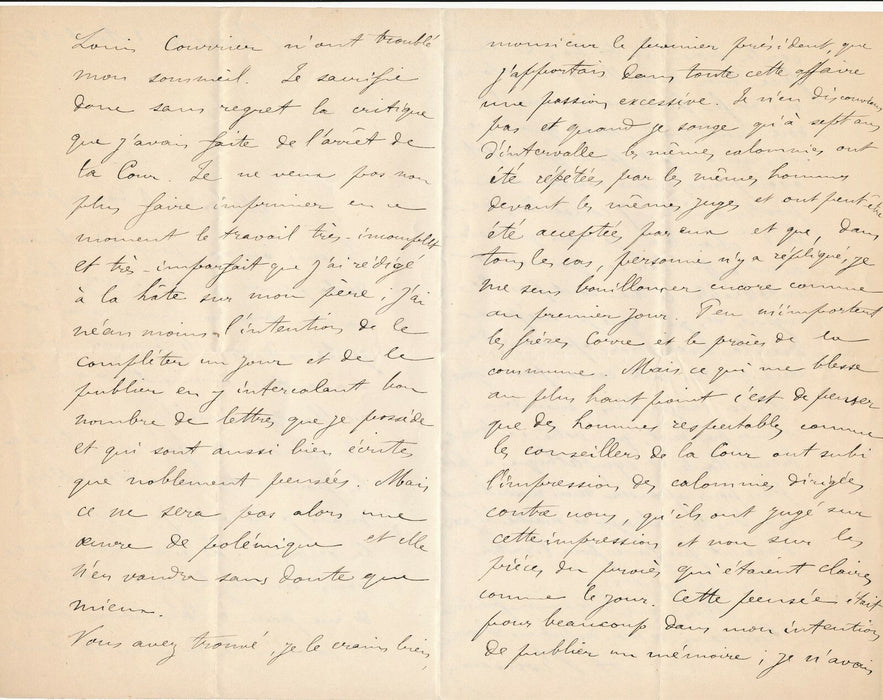 Louis Courrier n'ont troublé
mon sommeil. Je sacrifie
donc sans regret la critique
que j'avais faite de l'arrêt de
la Cour. Je ne veux pas non
plus faire imprimer en ce
moment le travail très-incomplet
et très-imparfait que j'ai rédigé
à la hâte sur mon père ; j'ai
néanmoins l'intention de le
compléter un jour et de le
publier en y intercalant bon
nombre de lettres que je possède
et qui sont aussi bien écrites
que noblement pensées. Mais
ce ne sera pas alors une
œuvre de polémique et elle
n'en vaudra sans doute que
mieux.
Vous avez trouvé, je le crains bien,
monsieur le premier président, que
j'apportais dans toute cette affaire
une passion excessive. Je n'en disconviens
pas et quand je songe qu'à sept ans
d'intervalle les mêmes calomnies ont
été répétées par les mêmes hommes
devant les mêmes juges et ont peut-être
été acceptées par eux et que, dans
tous les cas, personne n'y a répliqué, je
me sens bouillonner encore comme
au premier jour. Peu m'importent
les frères Corre et le procès de la
commune. Mais ce qui me blesse
au plus haut point c'est de penser
que des hommes respectables comme
les conseillers de la Cour ont subi
l'impression des calomnies dirigées
contre nous, qu'ils ont jugé sur
cette impression et non sur les
pièces du procès qui étaient claires
comme le jour. Cette pensée était
pour beaucoup dans mon intention
de publier un mémoire ; je n'avais